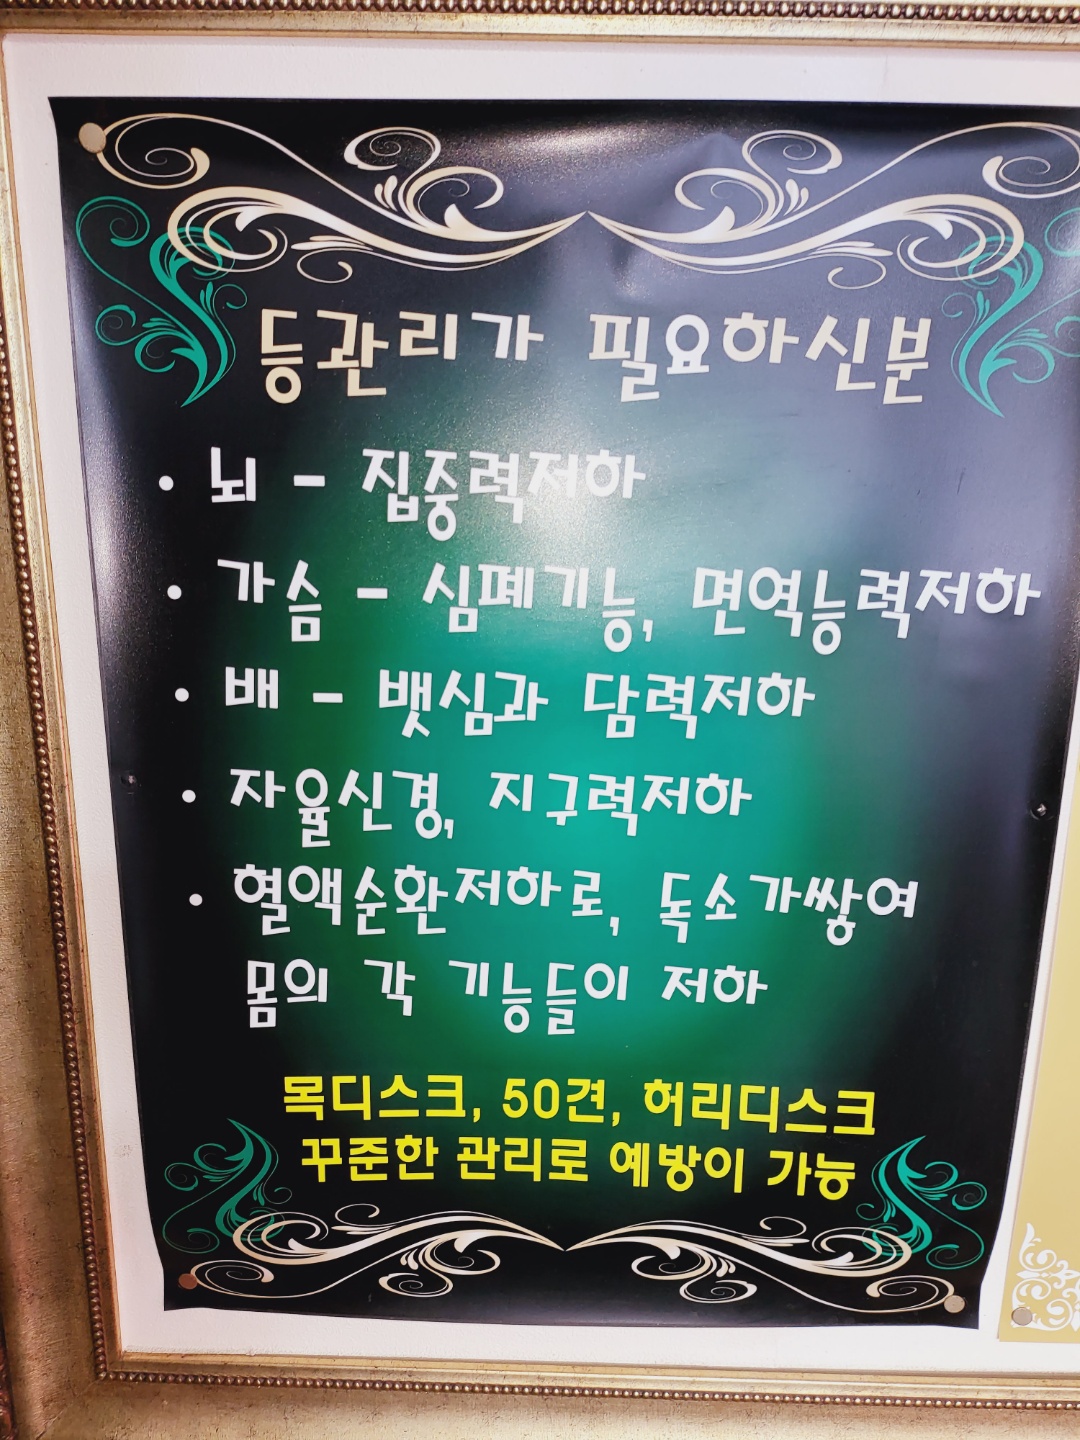 등관리가 필요하신분
• 뇌 - 집중력저하
• 가슴 - 심폐기능, 면역능력저하
• 배 - 뱃심과 담력저하
• 자율신경, 지구력저하
• 혈액순환저하로, 독소가쌓여
몸의 각 기능들이 저하
목디스크, 50견, 허리디스크
꾸준한 관리로 예방이 가능